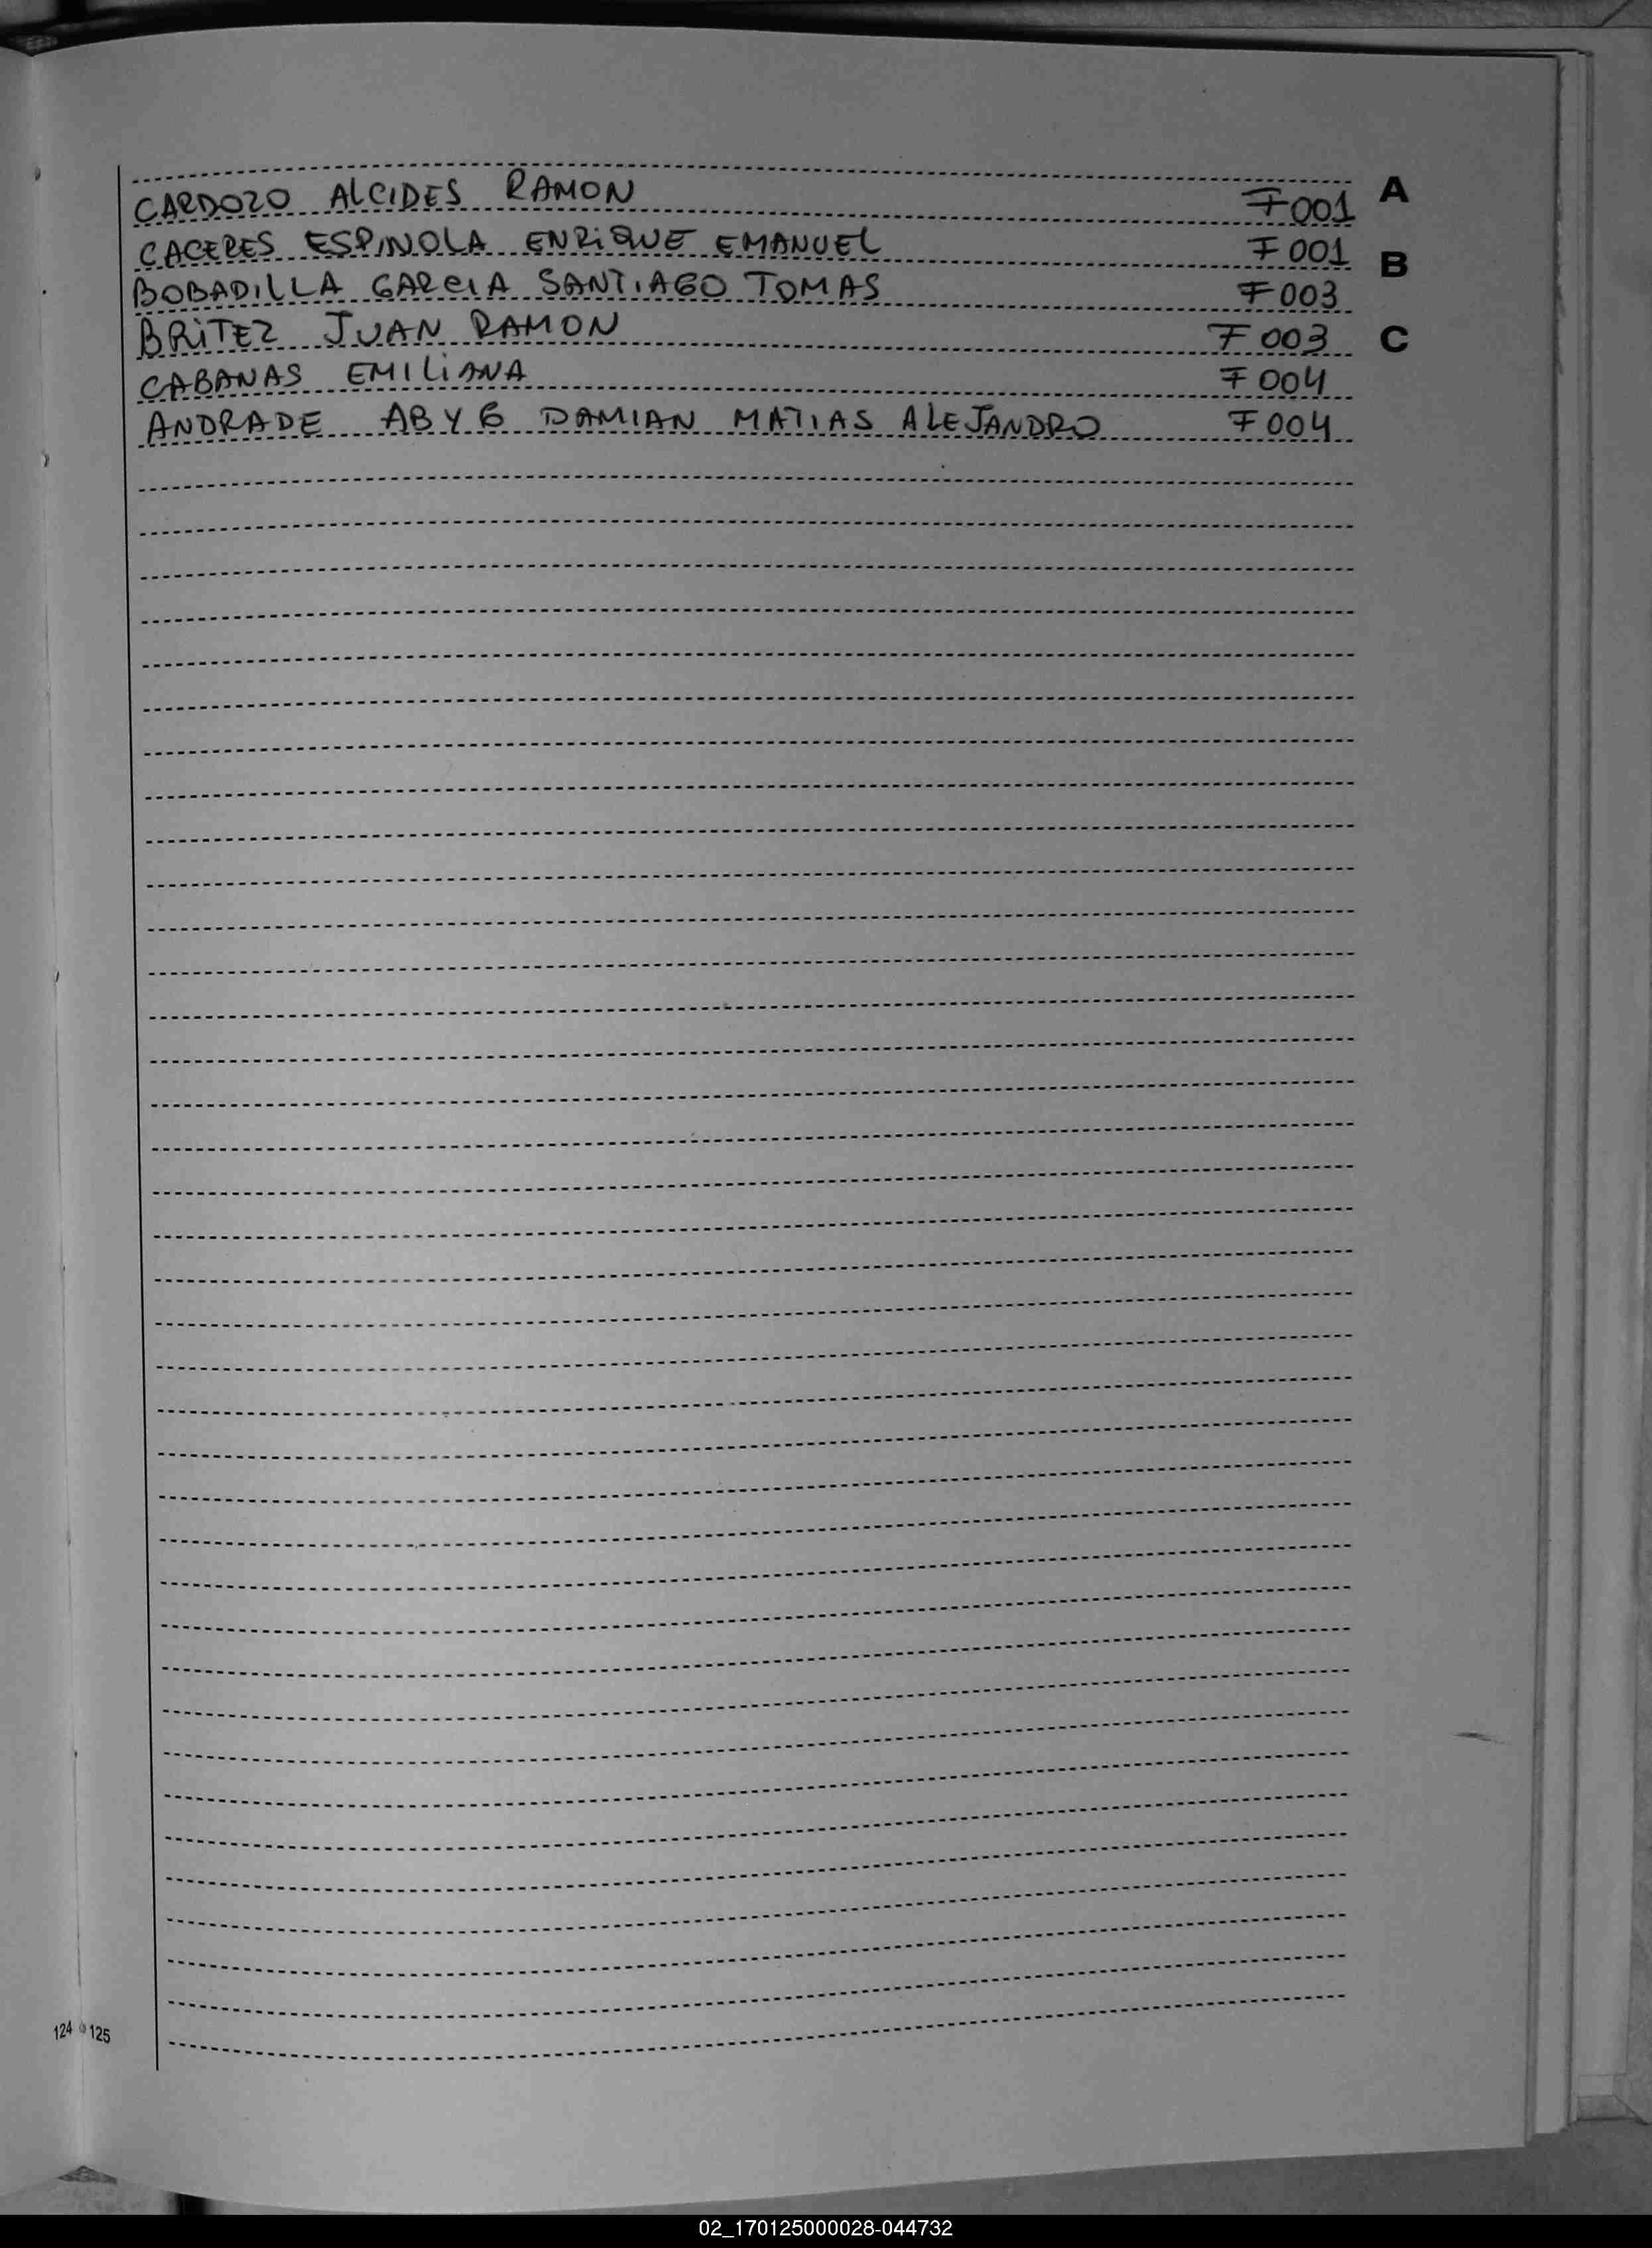 CARDOZO ALCIDES RAMON F001 A
CACERES ESPINOLA ENRIQUE EMANUEL F 001 B
BOBADILLA GARCIA SANTIAGO TOMAS F003
BRITEZ JUAN RAMON F 003 C
CABANAS EMILIANA F 004
ANDRADE DAMIAN MATIAS ALEJANDRO F 004
124 125
02_170125000028-044732